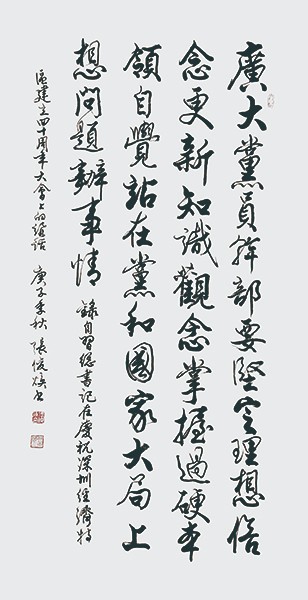 廣大黨員幹部要堅定理想信
念更新知識觀念掌握過硬本
領自覺站在黨和國家大局上
想問題辦事情
錄自習總書記在慶祝深圳經濟特
區建立四十周年大會上的講話 庚子年秋 張俊煥書